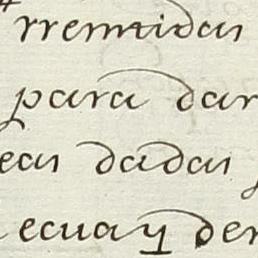 rremtidas
para dar
eas dadas
ecuay der